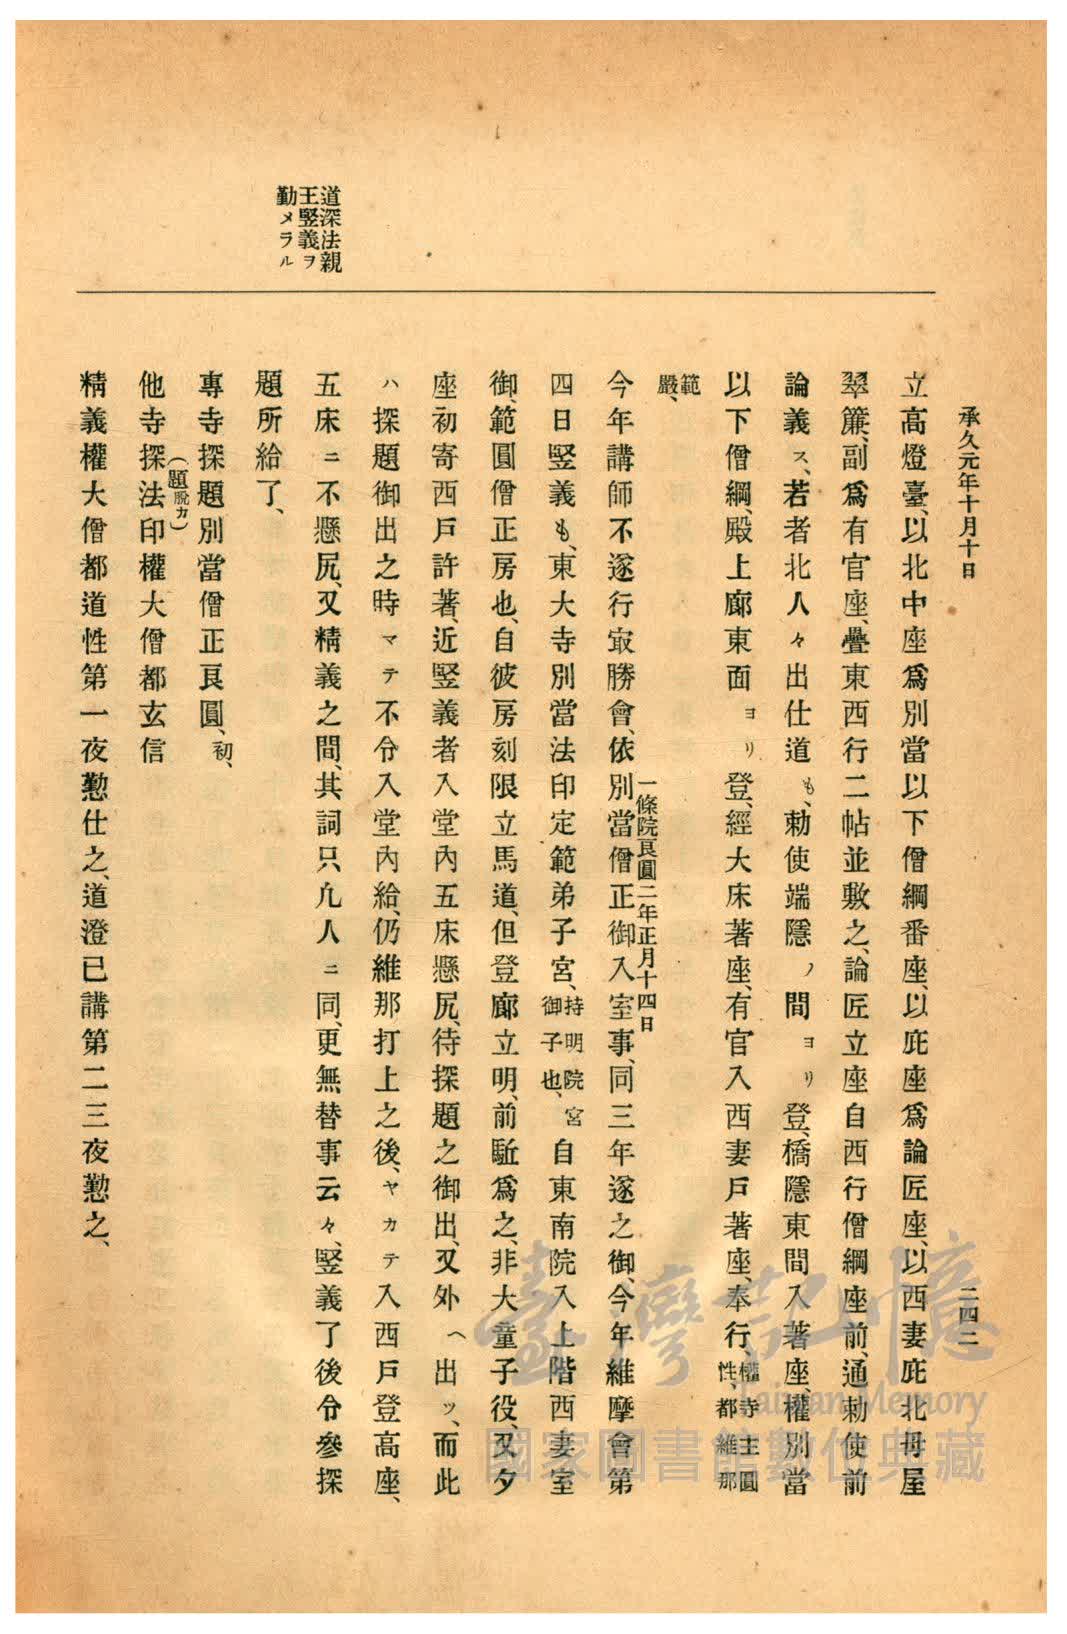 承久元年十月十日
二四二
道深法親
王竪義ヲ
勤メラル
立高燈臺、以北中座爲別當以下僧綱番座、以庇座爲論匠座、以西妻庇北母屋
翠簾、副爲有官座、疊東西行二帖並敷之、論匠立座自西行僧綱座前、通勅使前
論義ス、若者北人々出仕道も、勅使端隱ノ間ヨリ登、橋隱東間入著座、權別當
以下僧綱、殿上廊東面ヨリ登、經大床著座、有官入西妻戸著座、奉行、權寺主圓性、都維那
範嚴、
一條院良圓二年正月十四日
今年講師不遂行㝡勝會、依別當僧正御入室事、同三年遂之御、今年維摩會第
四日竪義も、東大寺別當法印定範弟子宮、持明院宮御子也、自東南院入上階西妻室
御、範圓僧正房也、自彼房刻限立馬道、但登廊立明、前駈爲之、非大童子役、又夕
座初寄西戸許著、近竪義者入堂内五床懸尻、待探題之御出、又外ヘ出ツ、而此
ハ探題御出之時マテ不令入堂内給、仍維那打上之後、ヤカテ入西戸登高座、
五床ニ不懸尻、又精義之間、其詞只凡人ニ同、更無替事云々、竪義了後令參探
題所給了、
專寺探題別當僧正良圓、初、
（題脱カ）
他寺探法印權大僧都玄信
精義權大僧都道性第一夜懃仕之、道澄已講第二三夜懃之、
臺灣記憶
Taiwan Memory
國家圖書館數位典藏